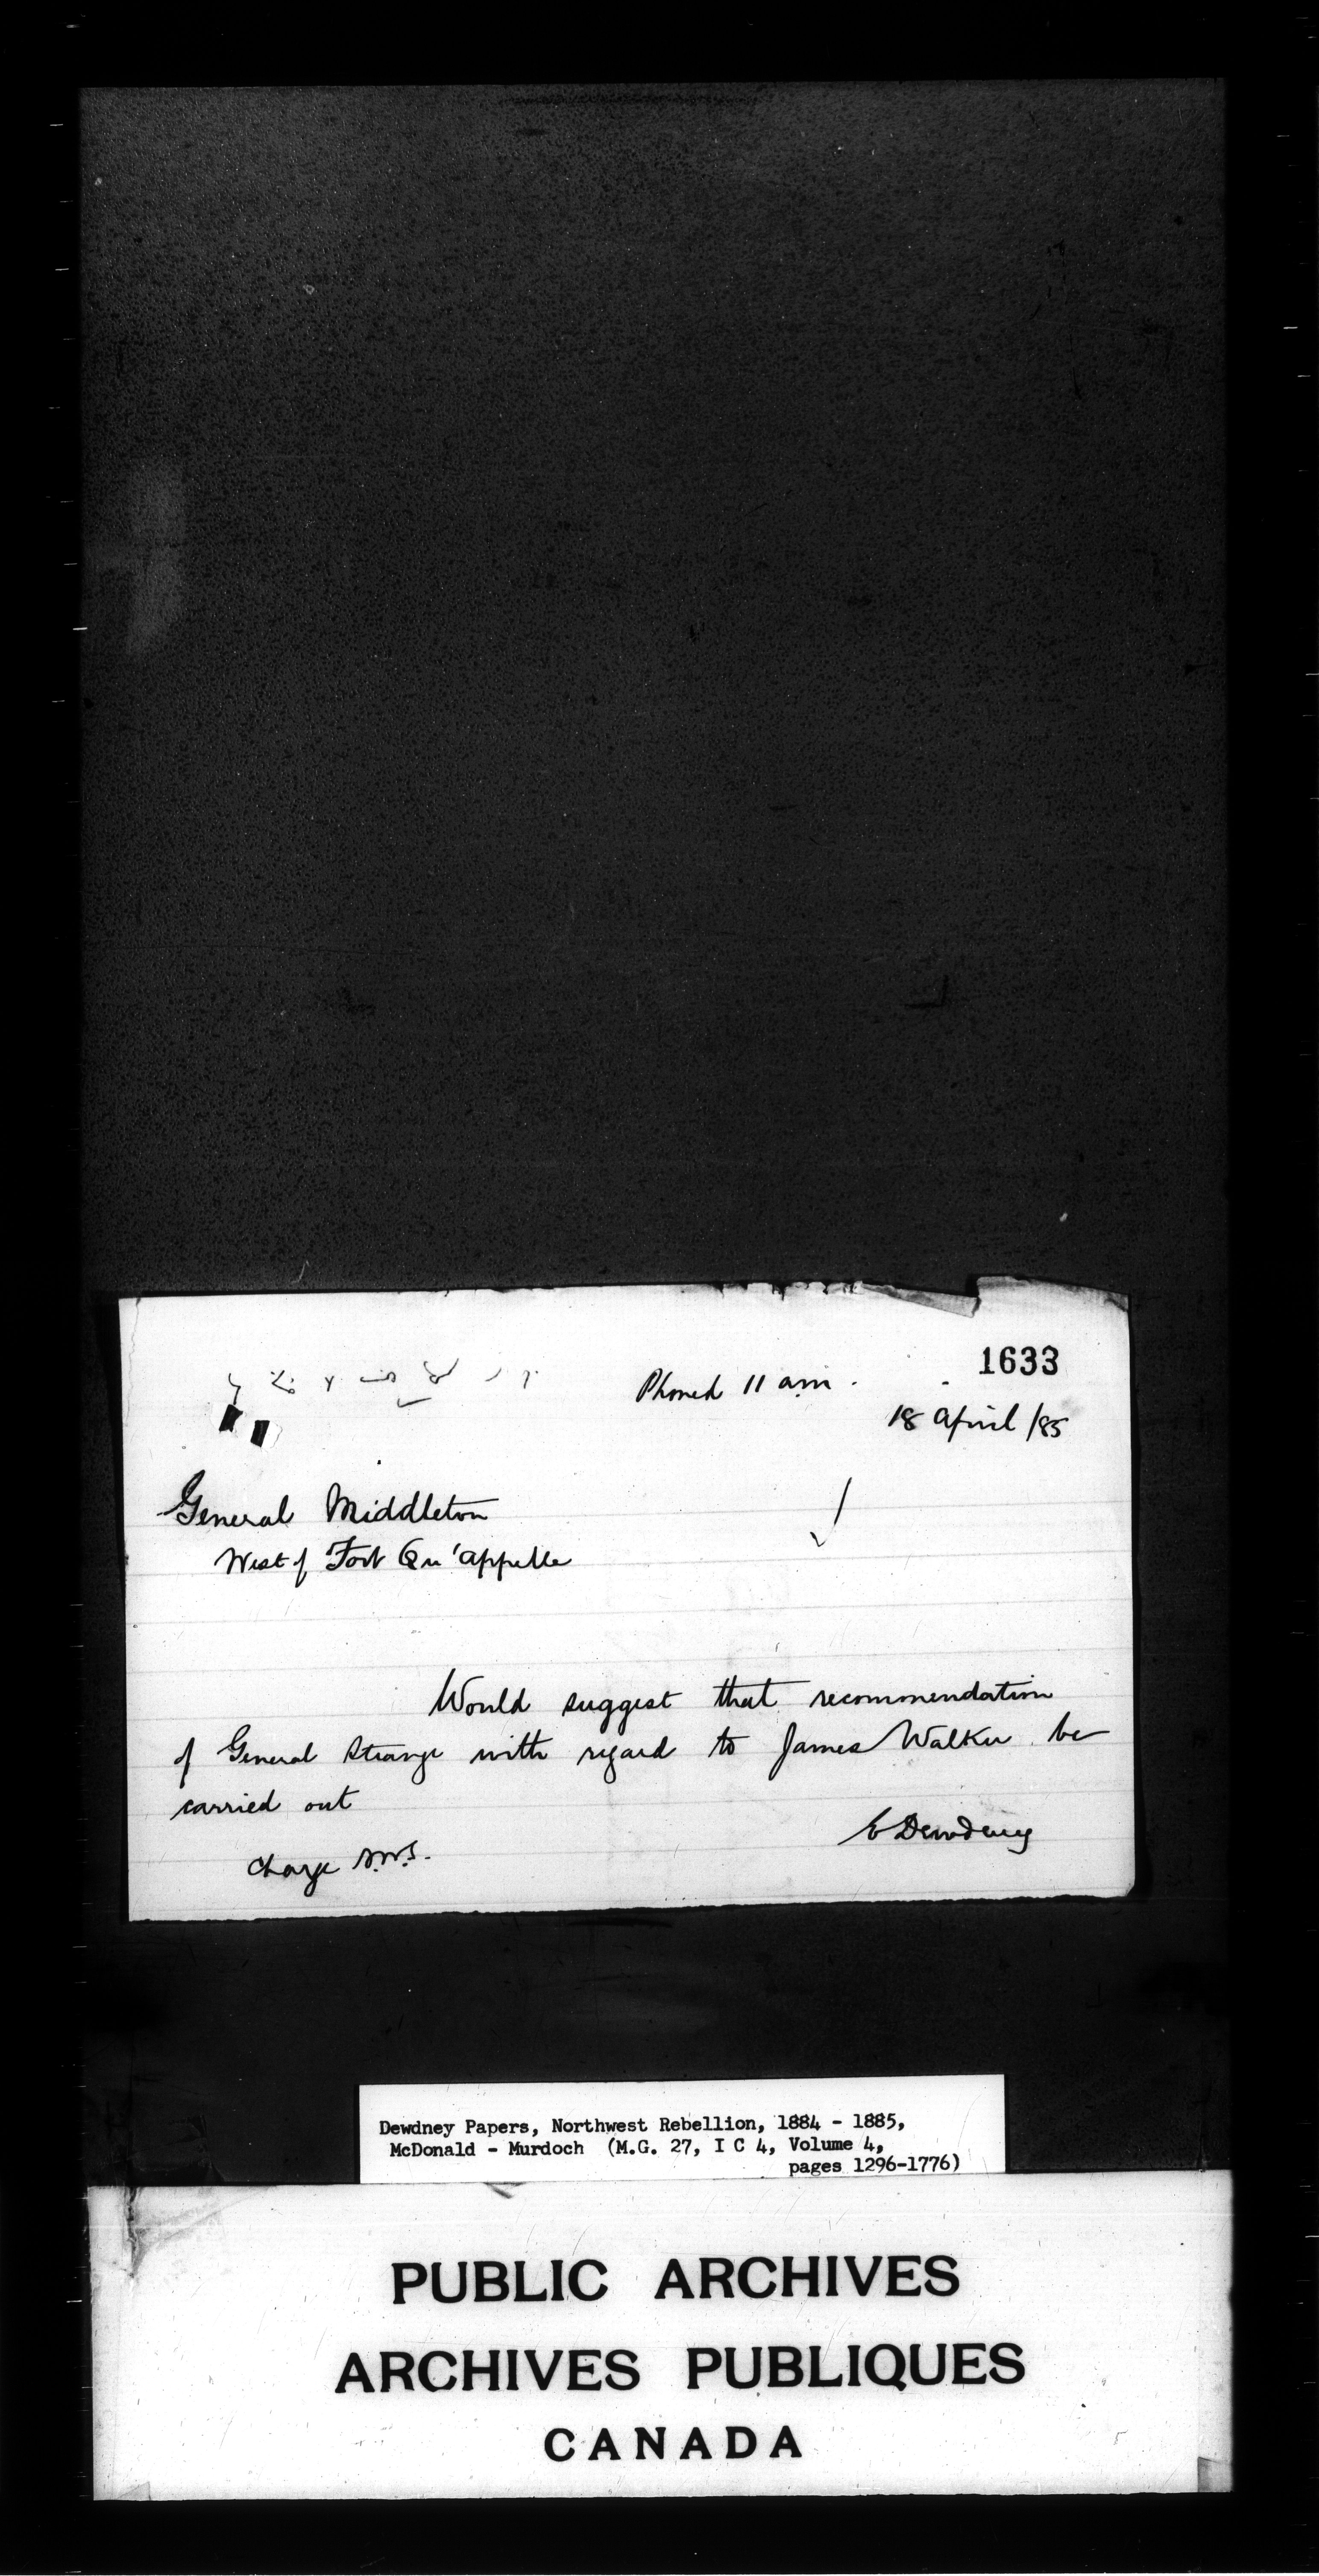 1633
Phoned 11 am.
18 April /85
General Middleton
West of Fort Qu'appelle
Would suggest that recommendation
of General Strange with regard to James Walker be
carried out
E Dewdney
Charge
Dewdney Papers, Northwest Rebellion, 1884 - 1885,
McDonald - Murdoch (M.G. 27, I C 4, Volume 4,
pages 1296-1776)
PUBLIC ARCHIVES
ARCHIVES PUBLIQUES
CANADA